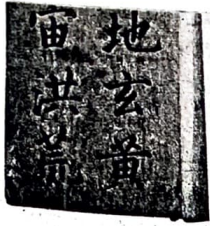 地玄黄
宙洪荒